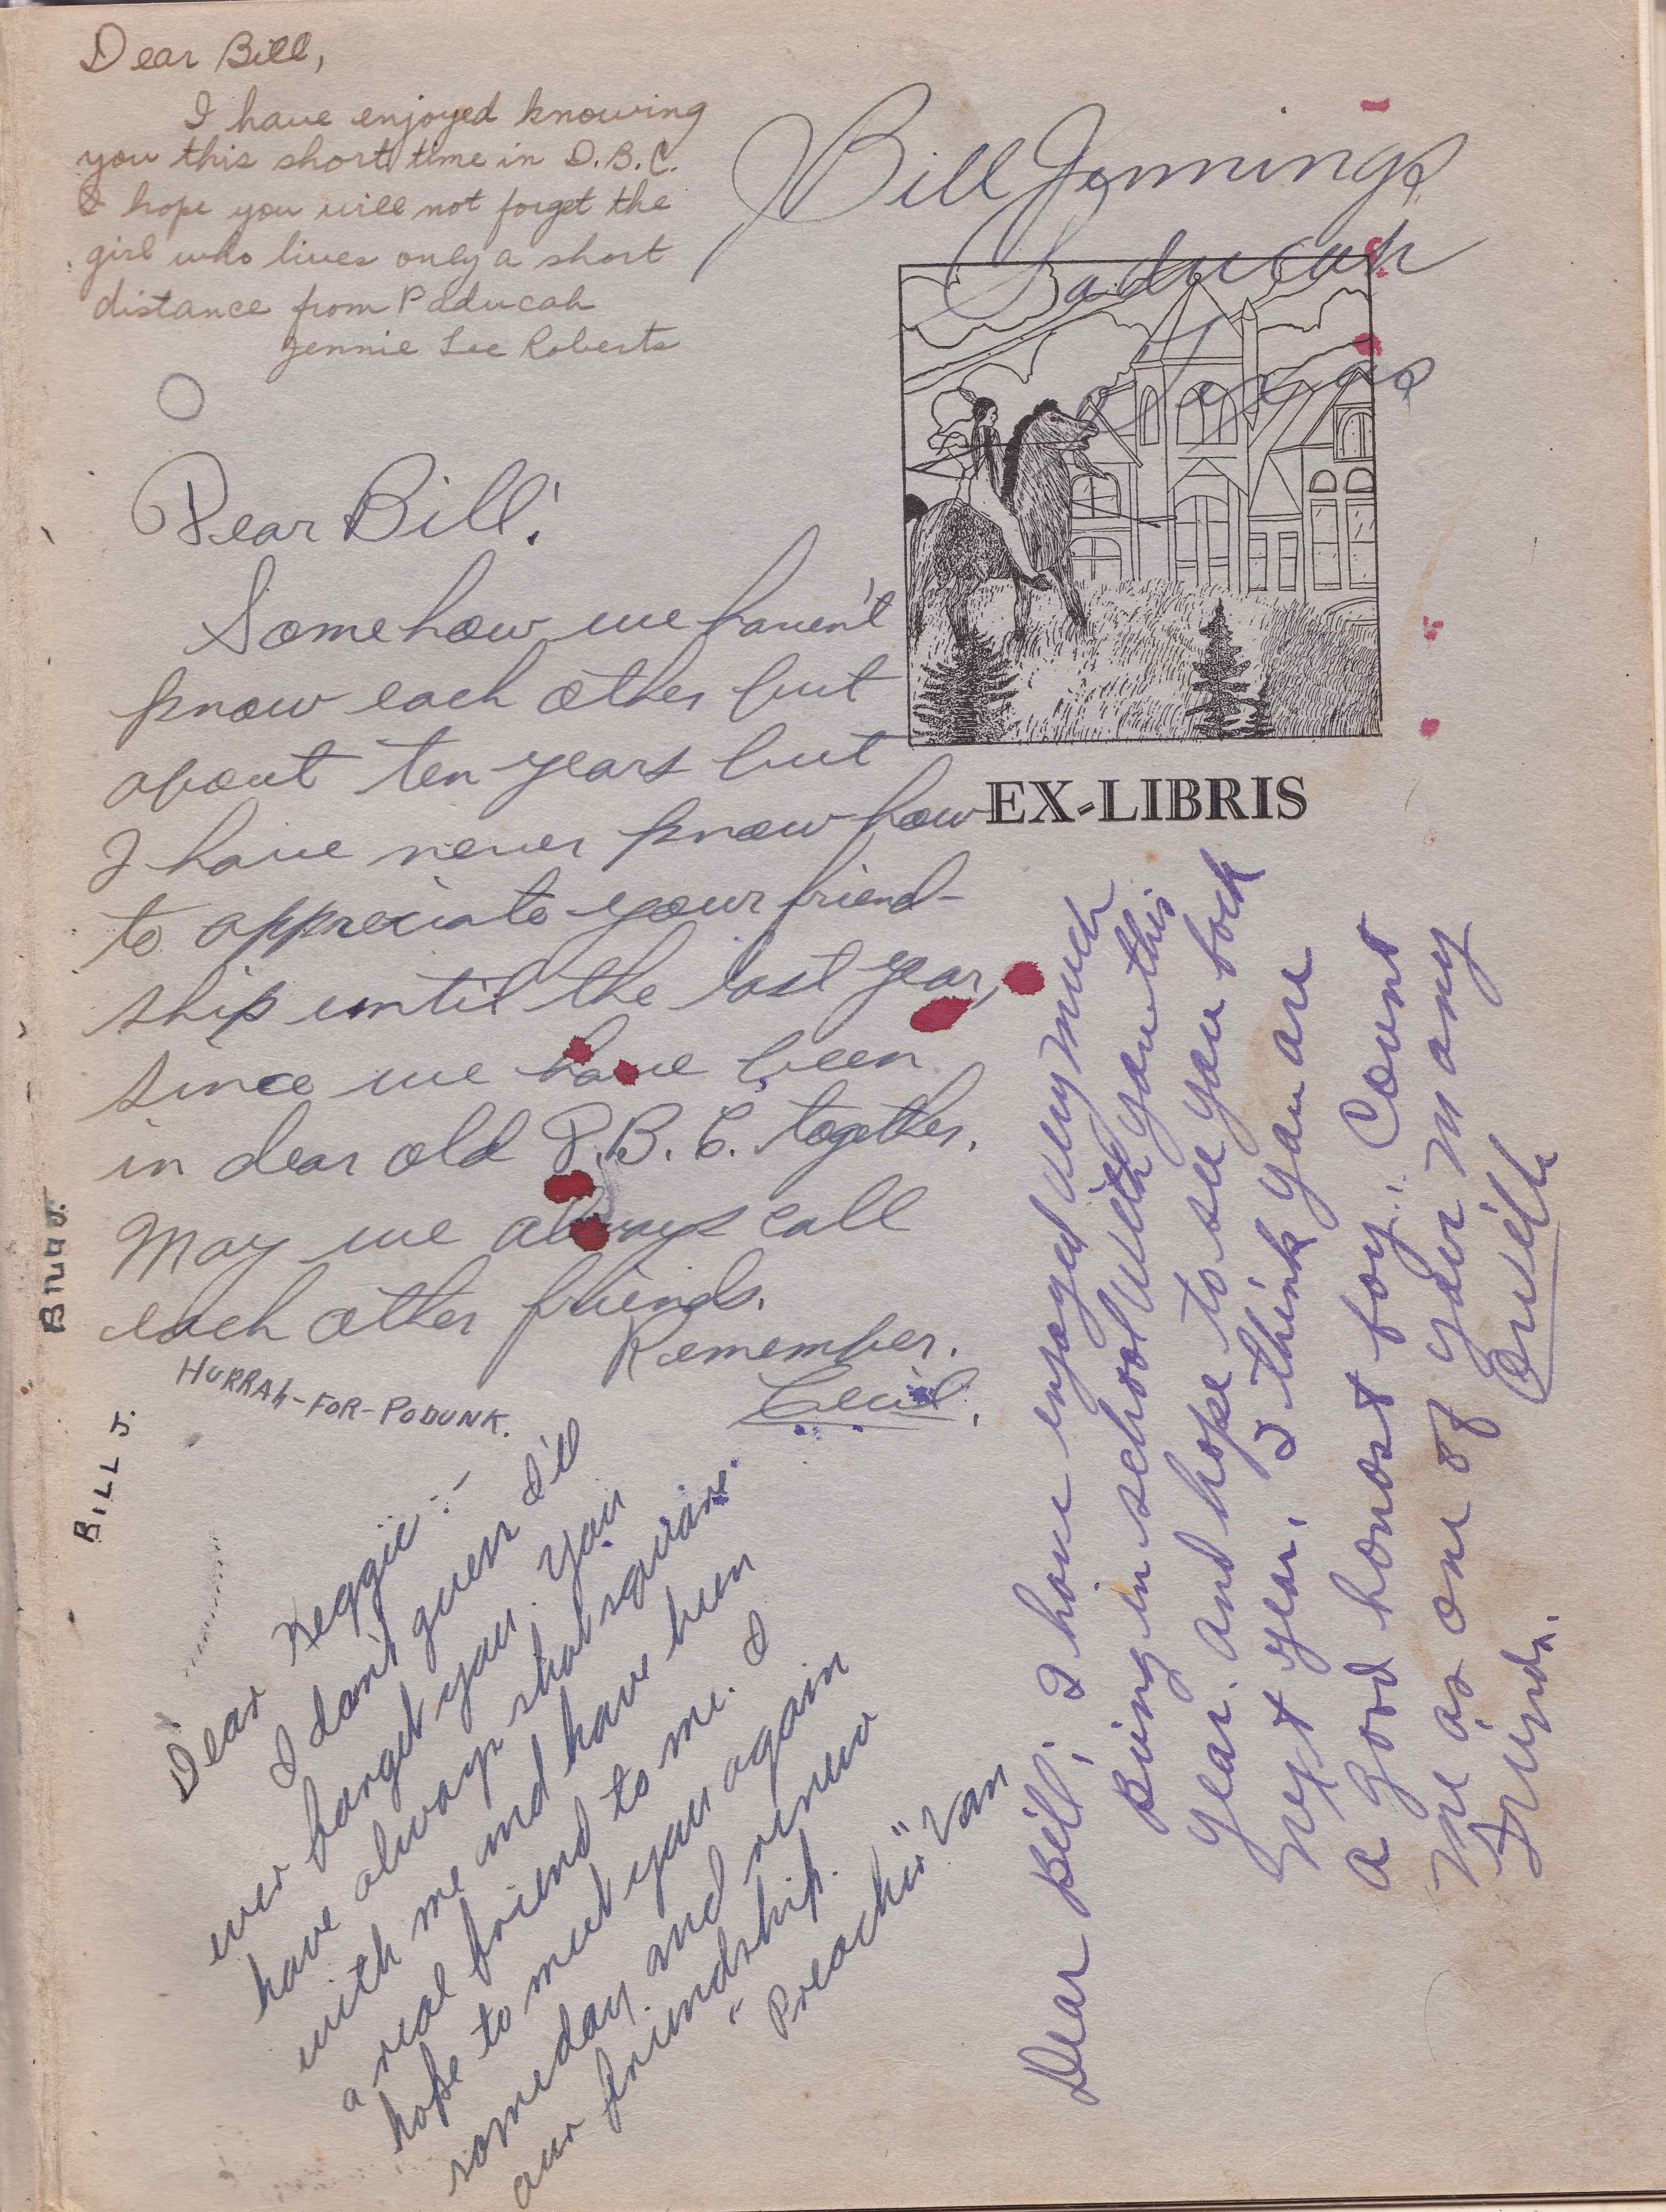 Dear Bill,
I have enjoyed knowing
you this short time in D.B.C.
I hope you will not forget the
girl who lives only a short
distance from Paducah
Jennie Lee Roberts
Bill Jennings
Paducah
Texas
Dear Bill!
Somehow we haven't
know each other but
about ten years but
I have never know how
to appreciate your friend-
ship until the last year,
since we have been
in dear old D.B.C. together.
May we always call
each other friends.
Remember.
Cecil.
EX-LIBRIS
HURRAh-FOR-PODUNK.
BILL J.
BILL J.
Dear Reggie:-
I don't guess I'll
ever forget you. You
have always shot square
with me and have been
a real friend to me. I
hope to meet you again
someday and renew
our friendship.
"Preacher" Van
Dear Bill; I have enjoyed very much
Being in school with you this
year. And hope to see you back
next year. I think you are
a good honost foy. Count
me as one of your many
Friends.